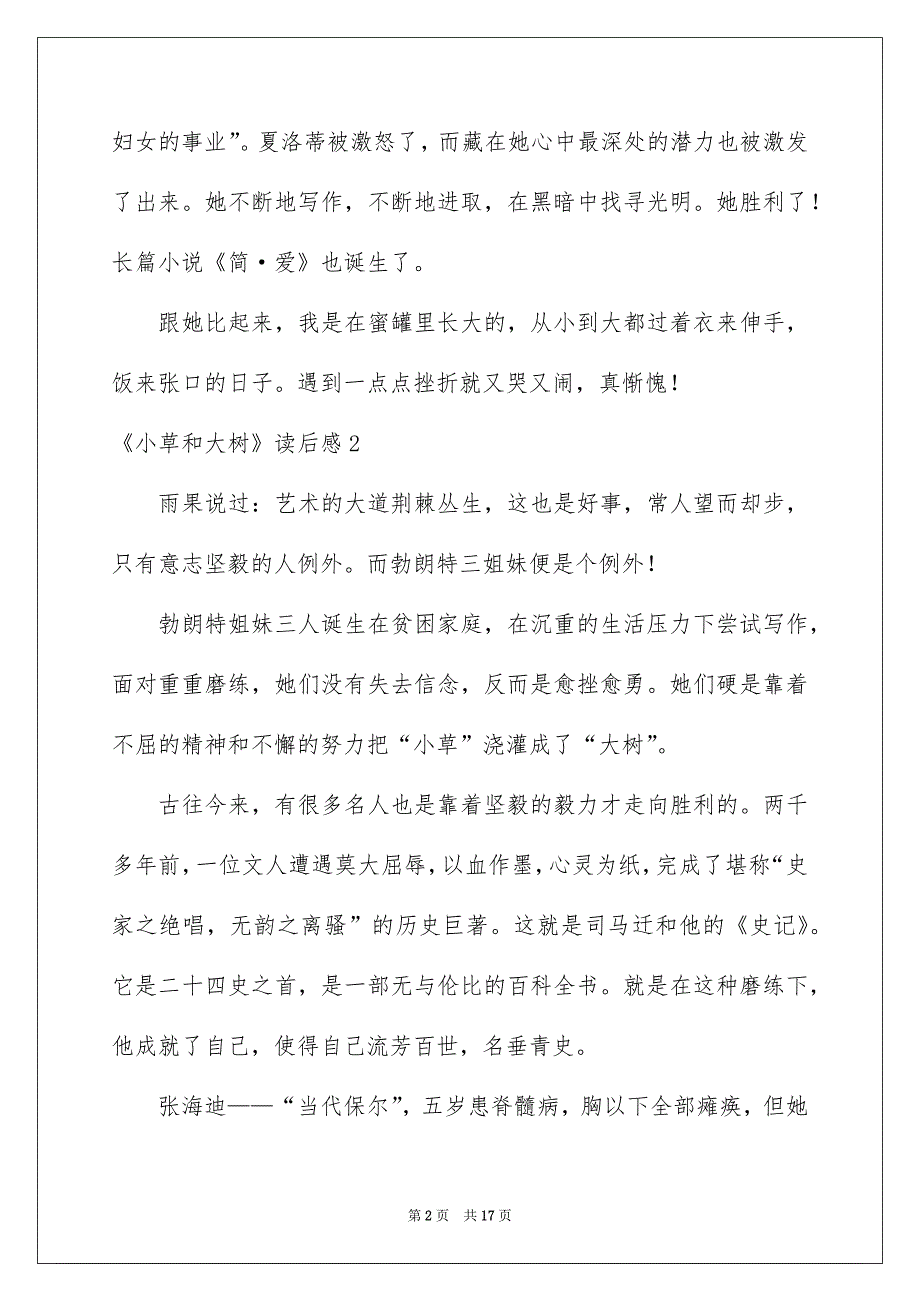 妇女的事业”。夏洛蒂被激怒了，而藏在她心中最深处的潜力也被激发
了出来。她不断地写作，不断地进取，在黑暗中找寻光明。她胜利了！
长篇小说《简·爱》也诞生了。
跟她比起来，我是在蜜罐里长大的，从小到大都过着衣来伸手，
饭来张口的日子。遇到一点点挫折就又哭又闹，真惭愧！
《小草和大树》读后感2
雨果说过：艺术的大道荆棘丛生，这也是好事，常人望而却步，
只有意志坚毅的人例外。而勃朗特三姐妹便是个例外！
勃朗特姐妹三人诞生在贫困家庭，在沉重的生活压力下尝试写作，
面对重重磨练，她们没有失去信念，反而是愈挫愈勇。她们硬是靠着
不屈的精神和不懈的努力把“小草”浇灌成了“大树”。
古往今来，有很多名人也是靠着坚毅的毅力才走向胜利的。两千
多年前，一位文人遭遇莫大屈辱，以血作墨，心灵为纸，完成了堪称“史
家之绝唱，无韵之离骚”的历史巨著。这就是司马迁和他的《史记》。
它是二十四史之首，是一部无与伦比的百科全书。就是在这种磨练下，
他成就了自己，使得自己流芳百世，名垂青史。
张海迪——“当代保尔”，五岁患脊髓病，胸以下全部瘫痪，但她
第2页 共17页